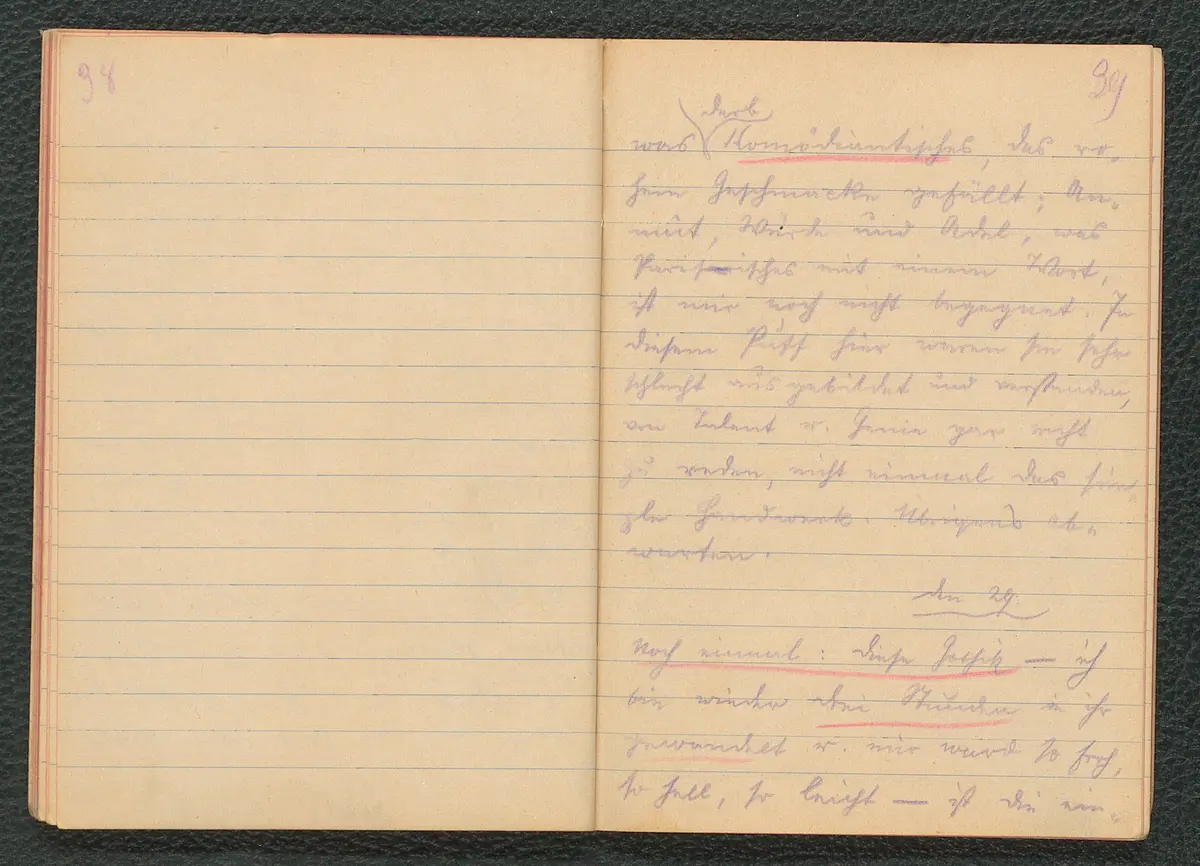 38
39
derb
was Komödiantisches, das ro-
hem Geschmacke gefällt; An-
mut, Würde und Adel, was
Parisisches mit einem Wort,
ist mir noch nicht begegnet. In
diesem Puff hier waren sie sehr
schlecht ausgebildet und verstanden,
von Talent u. Genie gar nicht
zu reden, nicht einmal das sim-
ple Handwerk. Übrigens ab-
warten.
den 29.
Noch einmal: diese Gothik — ich
bin wieder drei Stunden in ihr
gewandelt u. mir ward so froh,
so hell, so leicht — ist die ein-